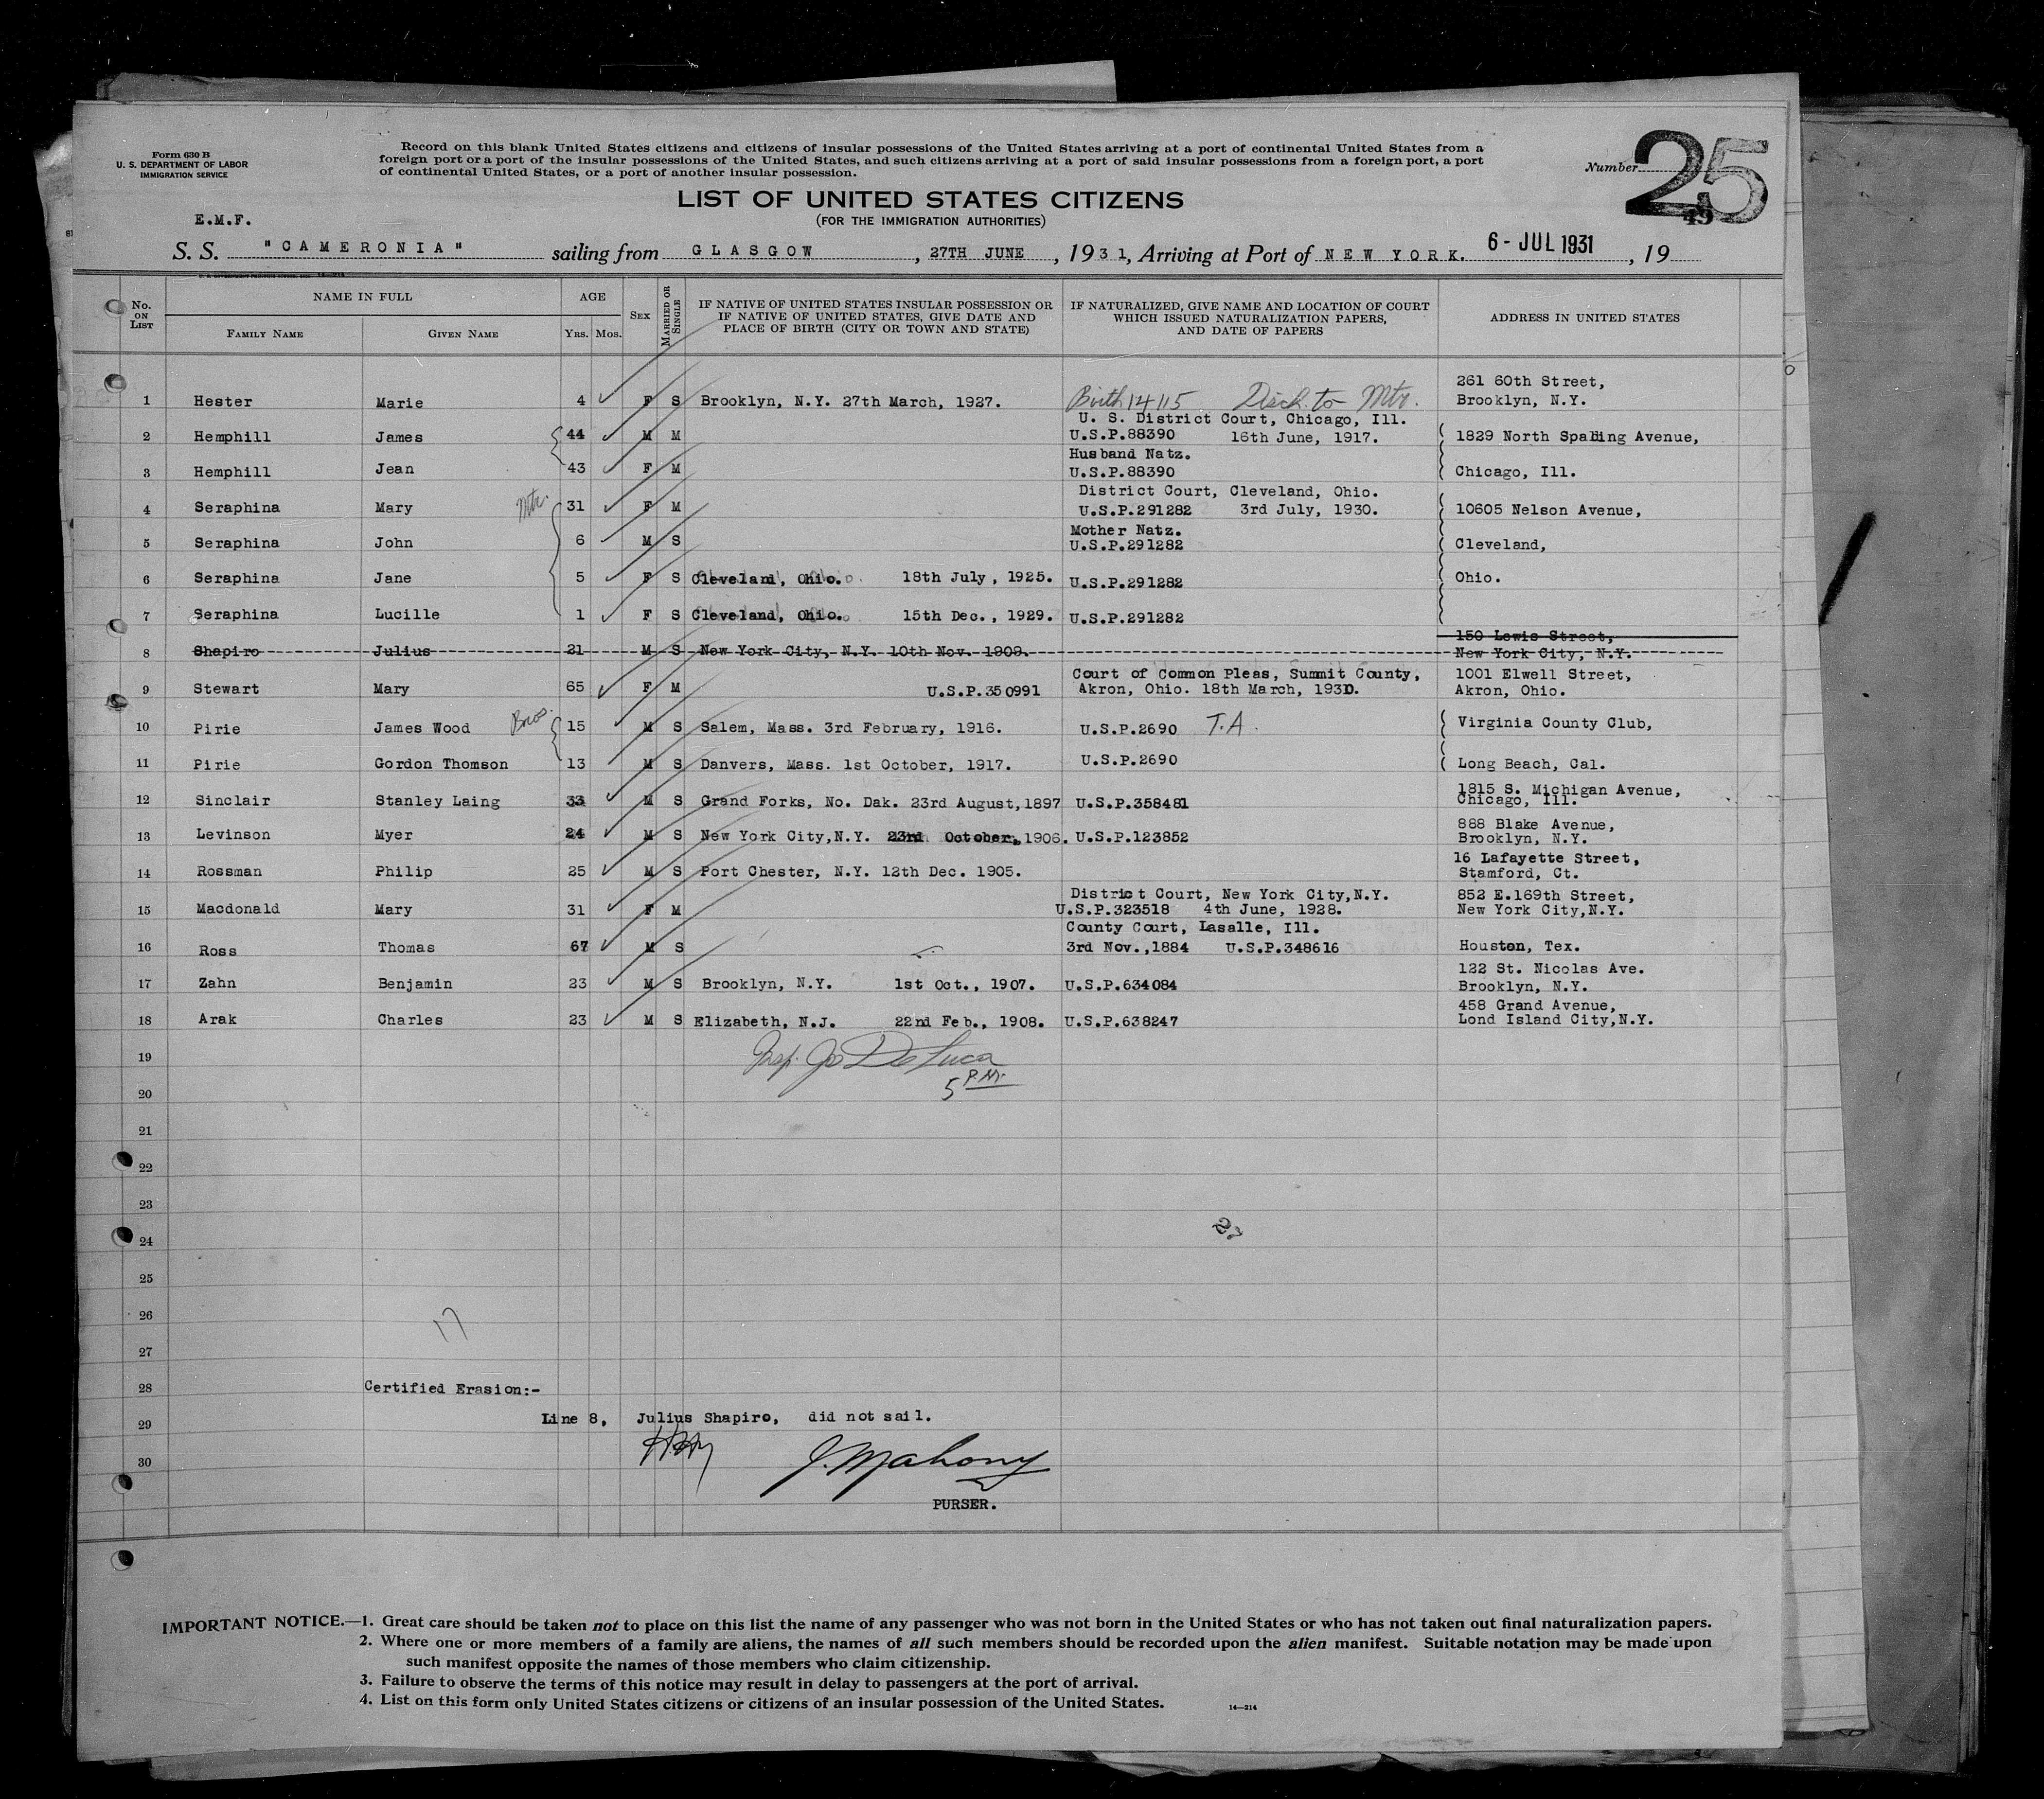 Form 630 B
U. S. DEPARTMENT OF LABOR
IMMIGRATION SERVICE
Record on this blank United States citizens and citizens of insular possessions of the United States arriving at a port of continental United States from a
foreign port or a port of the insular possessions of the United States, and such citizens arriving at a port of said insular possessions from a foreign port, a port
of continental United States, or a port of another insular possession.
Number 25
49
LIST OF UNITED STATES CITIZENS
(FOR THE IMMIGRATION AUTHORITIES)
E.M.F.
S. S. "CAMERONIA" sailing from GLASGOW, 27TH JUNE, 1931, Arriving at Port of NEW YORK. 6 - JUL 1931, 19
No. ON LIST
NAME IN FULL
FAMILY NAME GIVEN NAME
AGE
YRS. MOS.
SEX
MARRIED OR SINGLE
IF NATIVE OF UNITED STATES INSULAR POSSESSION OR
IF NATIVE OF UNITED STATES, GIVE DATE AND
PLACE OF BIRTH (CITY OR TOWN AND STATE)
IF NATURALIZED, GIVE NAME AND LOCATION OF COURT
WHICH ISSUED NATURALIZATION PAPERS,
AND DATE OF PAPERS
ADDRESS IN UNITED STATES
261 60th Street,
1 Hester Marie 4 F S Brooklyn, N.Y. 27th March, 1927. Birth 14115 Disch. to Mtr. Brooklyn, N.Y.
U. S. District Court, Chicago, Ill.
2 Hemphill James 44 M M U.S.P.88390 16th June, 1917. 1829 North Spalding Avenue,
Husband Natz.
3 Hemphill Jean 43 F M U.S.P.88390 Chicago, Ill.
District Court, Cleveland, Ohio.
4 Seraphina Mary Mtr. 31 F M U.S.P.291282 3rd July, 1930. 10605 Nelson Avenue,
Mother Natz.
5 Seraphina John 6 M S U.S.P.291282 Cleveland,
6 Seraphina Jane 5 F S Cleveland, Ohio. 18th July, 1925. U.S.P.291282 Ohio.
7 Seraphina Lucille 1 F S Cleveland, Ohio. 15th Dec., 1929. U.S.P.291282
150 Lewis Street,
8 Shapiro Julius 21 M S New York City, N.Y. 10th Nov. 1909. New York City, N.Y.
Court of Common Pleas, Summit County, 1001 Elwell Street,
9 Stewart Mary 65 F M U.S.P.350991 Akron, Ohio. 18th March, 1930. Akron, Ohio.
10 Pirie James Wood Bros. 15 M S Salem, Mass. 3rd February, 1916. U.S.P.2690 T.A. Virginia County Club,
11 Pirie Gordon Thomson 13 M S Danvers, Mass. 1st October, 1917. U.S.P.2690 Long Beach, Cal.
1815 S. Michigan Avenue,
12 Sinclair Stanley Laing 33 M S Grand Forks, No. Dak. 23rd August, 1897 U.S.P.358481 Chicago, Ill.
888 Blake Avenue,
13 Levinson Myer 24 M S New York City, N.Y. 23rd October, 1906. U.S.P.123852 Brooklyn, N.Y.
16 Lafayette Street,
14 Rossman Philip 25 M S Port Chester, N.Y. 12th Dec. 1905. Stamford, Ct.
District Court, New York City, N.Y. 852 E.169th Street,
15 Macdonald Mary 31 F M U.S.P.323518 4th June, 1928. New York City, N.Y.
County Court, Lasalle, Ill.
16 Ross Thomas 67 M S 3rd Nov., 1884 U.S.P.348616 Houston, Tex.
122 St. Nicolas Ave.
17 Zahn Benjamin 23 M S Brooklyn, N.Y. 1st Oct., 1907. U.S.P.634084 Brooklyn, N.Y.
458 Grand Avenue,
18 Arak Charles 23 M S Elizabeth, N.J. 22nd Feb., 1908. U.S.P.638247 Lond Island City, N.Y.
19 Insp. Jos DeLuca
5 P.M.
20
21
22
23
27
24
25
26
17
27
28 Certified Erasion:-
29 Line 8, Julius Shapiro, did not sail.
30 J. Mahony
PURSER.
IMPORTANT NOTICE.—1. Great care should be taken not to place on this list the name of any passenger who was not born in the United States or who has not taken out final naturalization papers.
2. Where one or more members of a family are aliens, the names of all such members should be recorded upon the alien manifest. Suitable notation may be made upon
such manifest opposite the names of those members who claim citizenship.
3. Failure to observe the terms of this notice may result in delay to passengers at the port of arrival.
4. List on this form only United States citizens or citizens of an insular possession of the United States.
14—214